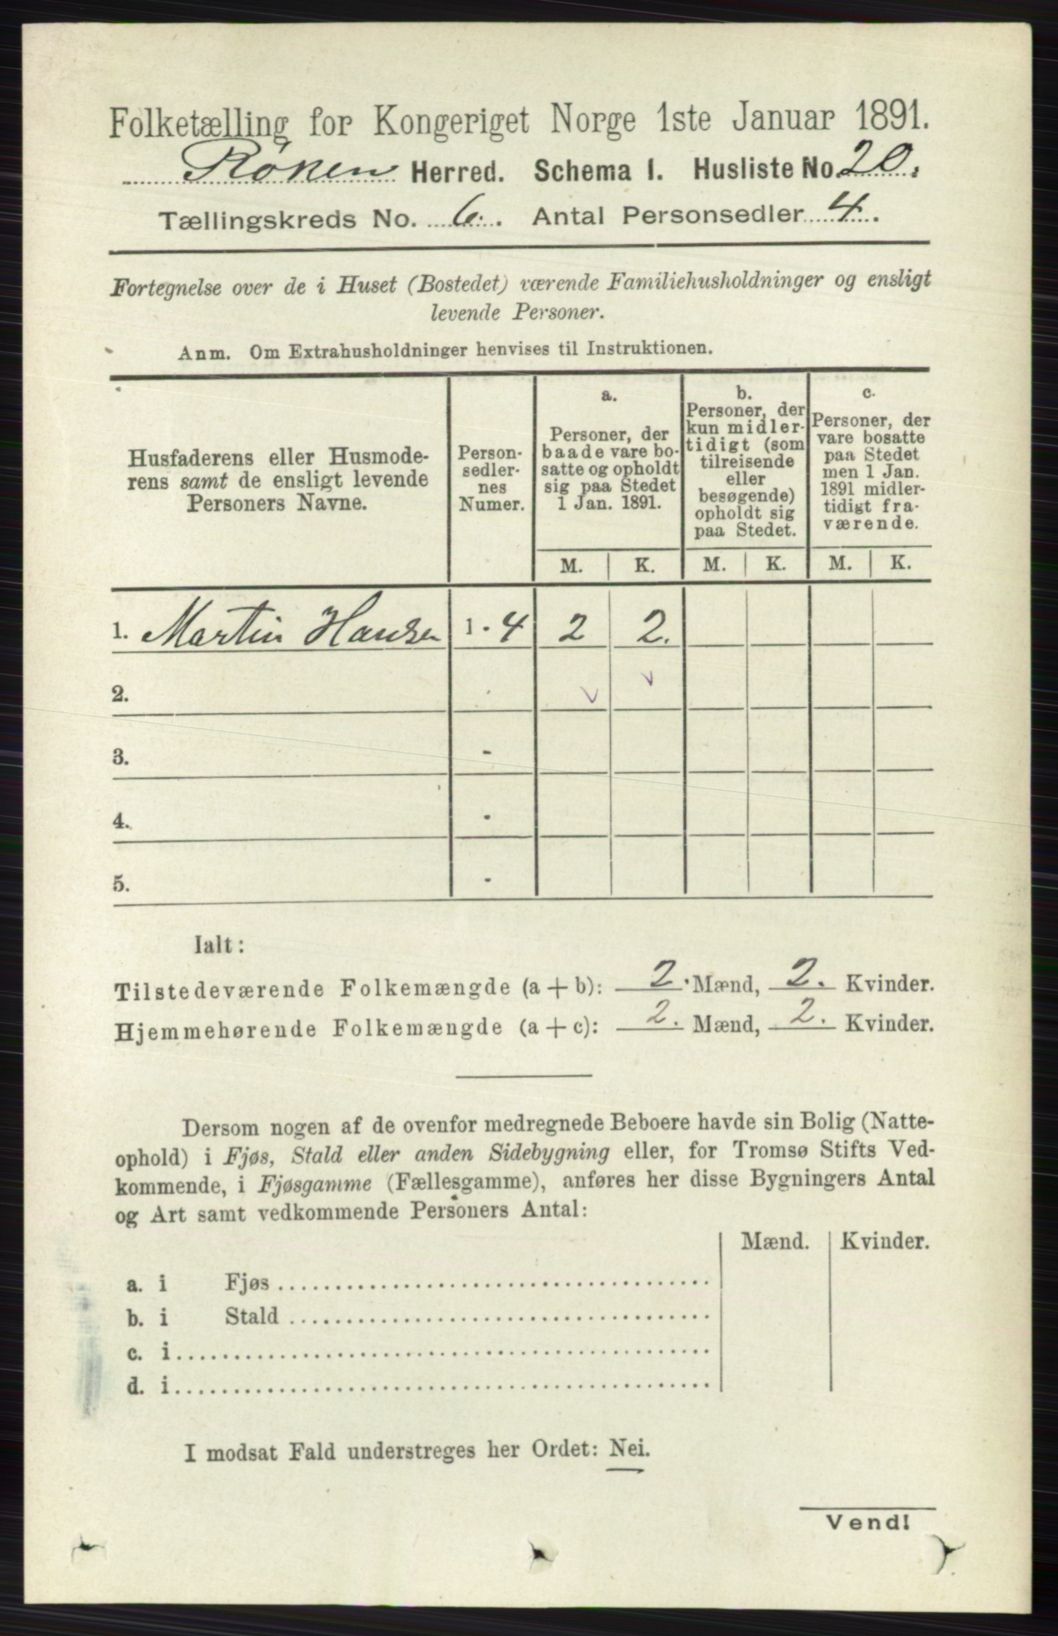 Folketælling for Kongeriget Norge 1ste Januar 1891.
Röken Herred. Schema I. Husliste No. 20.
Tællingskreds No. 6. Antal Personsedler 4.
Fortegnelse over de i Huset (Bostedet) værende Familiehusholdninger og ensligt
levende Personer.
Anm. Om Extrahusholdninger henvises til Instruktionen.
Husfaderens eller Husmode-
rens samt de ensligt levende
Personers Navne.
Person-
sedler-
nes
Numer.
a.
Personer, der
baade vare bo-
satte og opholdt
sig paa Stedet
1 Jan. 1891.
b.
Personer, der
kun midler-
tidigt (som
tilreisende
eller
besøgende)
opholdt sig
paa Stedet.
c.
Personer, der
vare bosatte
paa Stedet
men 1 Jan.
1891 midler-
tidigt fra-
værende.
M. K. M. K. M. K.
1. Martin Hansen 1 - 4 2 2.
2.
3. -
4. -
5. -
Ialt:
Tilstedeværende Folkemængde (a + b): 2. Mænd, 2. Kvinder.
Hjemmehørende Folkemængde (a + c): 2. Mænd, 2. Kvinder.
Dersom nogen af de ovenfor medregnede Beboere havde sin Bolig (Natte-
ophold) i Fjøs, Stald eller anden Sidebygning eller, for Tromsø Stifts Ved-
kommende, i Fjøsgamme (Fællesgamme), anføres her disse Bygningers Antal
og Art samt vedkommende Personers Antal:
Mænd. Kvinder.
a. i Fjøs
b. i Stald
c. i
d. i
I modsat Fald understreges her Ordet: Nei.
Vend!